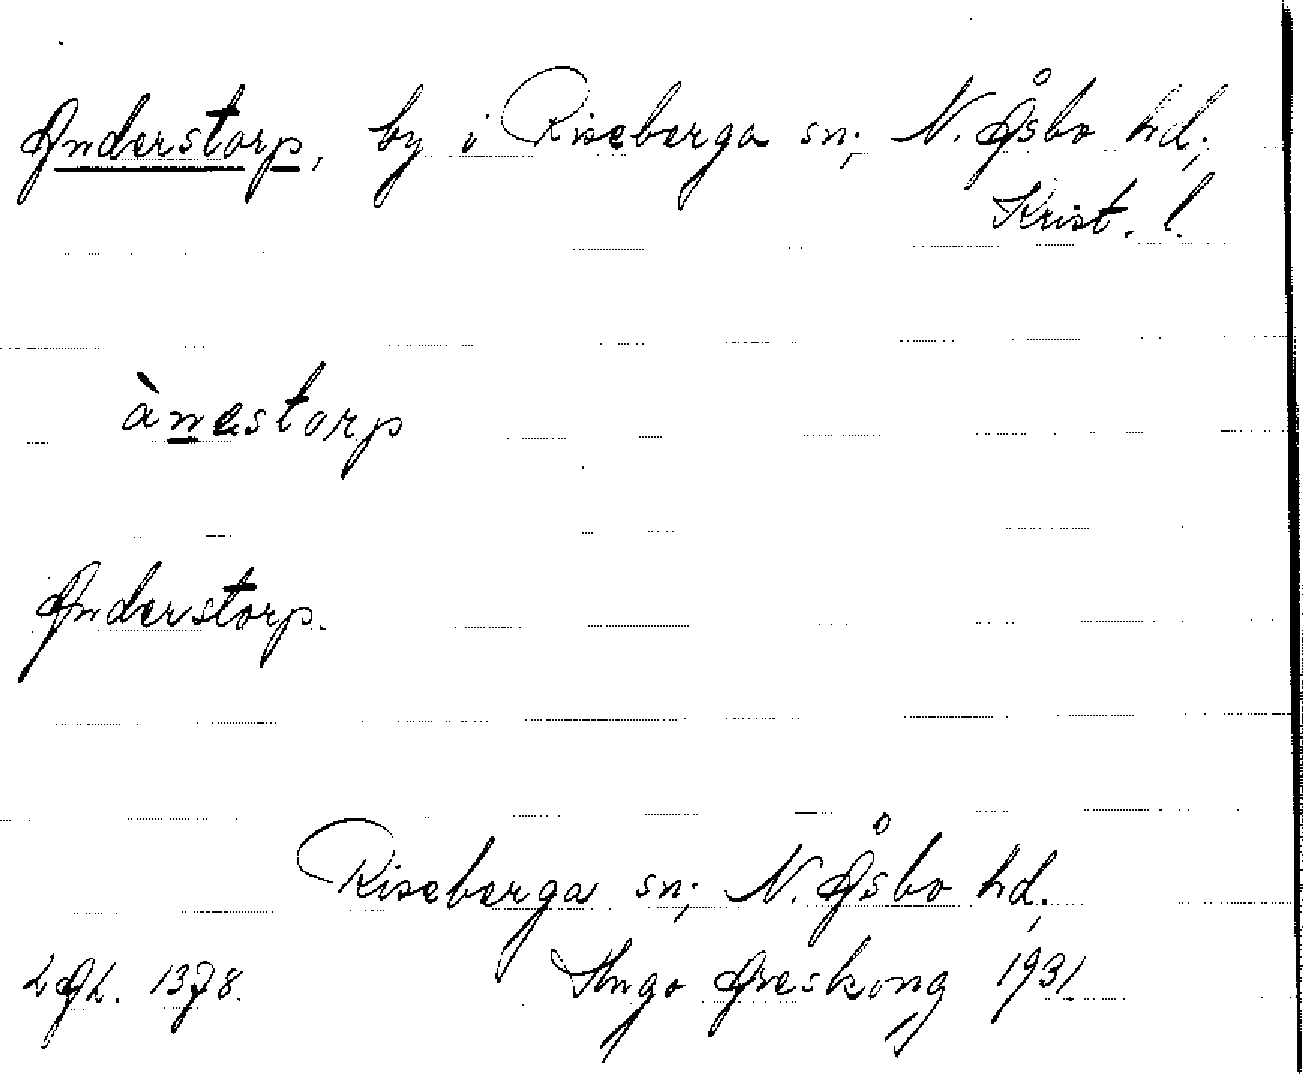 Anderstorp, by i Riseberga sn; N. Åsbo hd;
Krist. l.
ànastorp
Anderstorp.
Riseberga sn; N. Åsbo hd,
LAL. 1378. Hugo Areskoug 1931